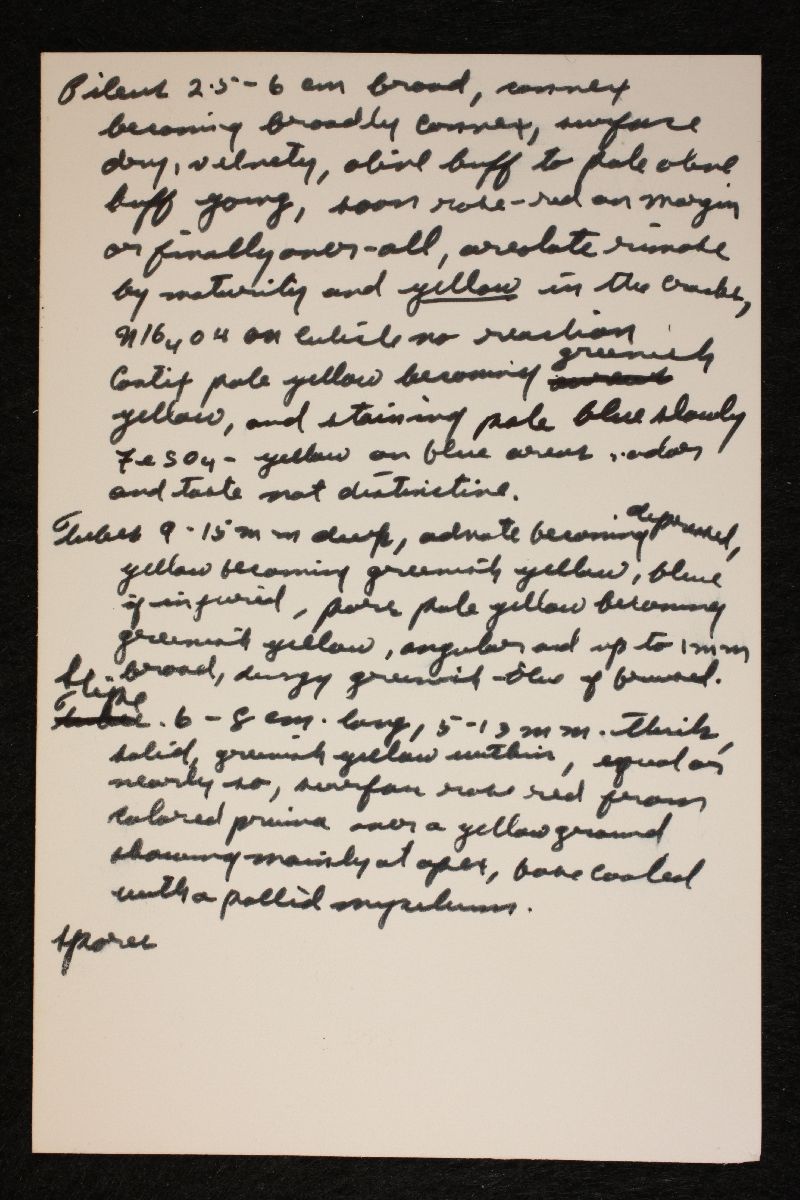 Pileus 2.5 - 6 cm broad, convex
becoming broadly convex, surface
dry, velvety, olive buff to pale olive
buff young, soon rose-red on margin
or finally over-all, areolate rimose
by maturity and yellow in the cracks,
NH4OH on cuticle no reaction
Contix pale yellow becoming greenish
yellow, and staining pale blue slowly
FeSO4 - yellow on blue areas, odor
and taste not distinctive.
Tubes 9-15 mm deep, adnate becoming depressed,
yellow becoming greenish yellow, blue
if injured, pores pale yellow becoming
greenish yellow, angular and up to 1 mm
broad, dingy greenish-blue if bruised.
Stipe 6 - 8 cm. long, 5-13 mm. thick,
solid, greenish yellow within, equal or
nearly so, surface rose red from
colored pruina over a yellow ground
showing mainly at apex, base
with a pallid mycelium.
Spores